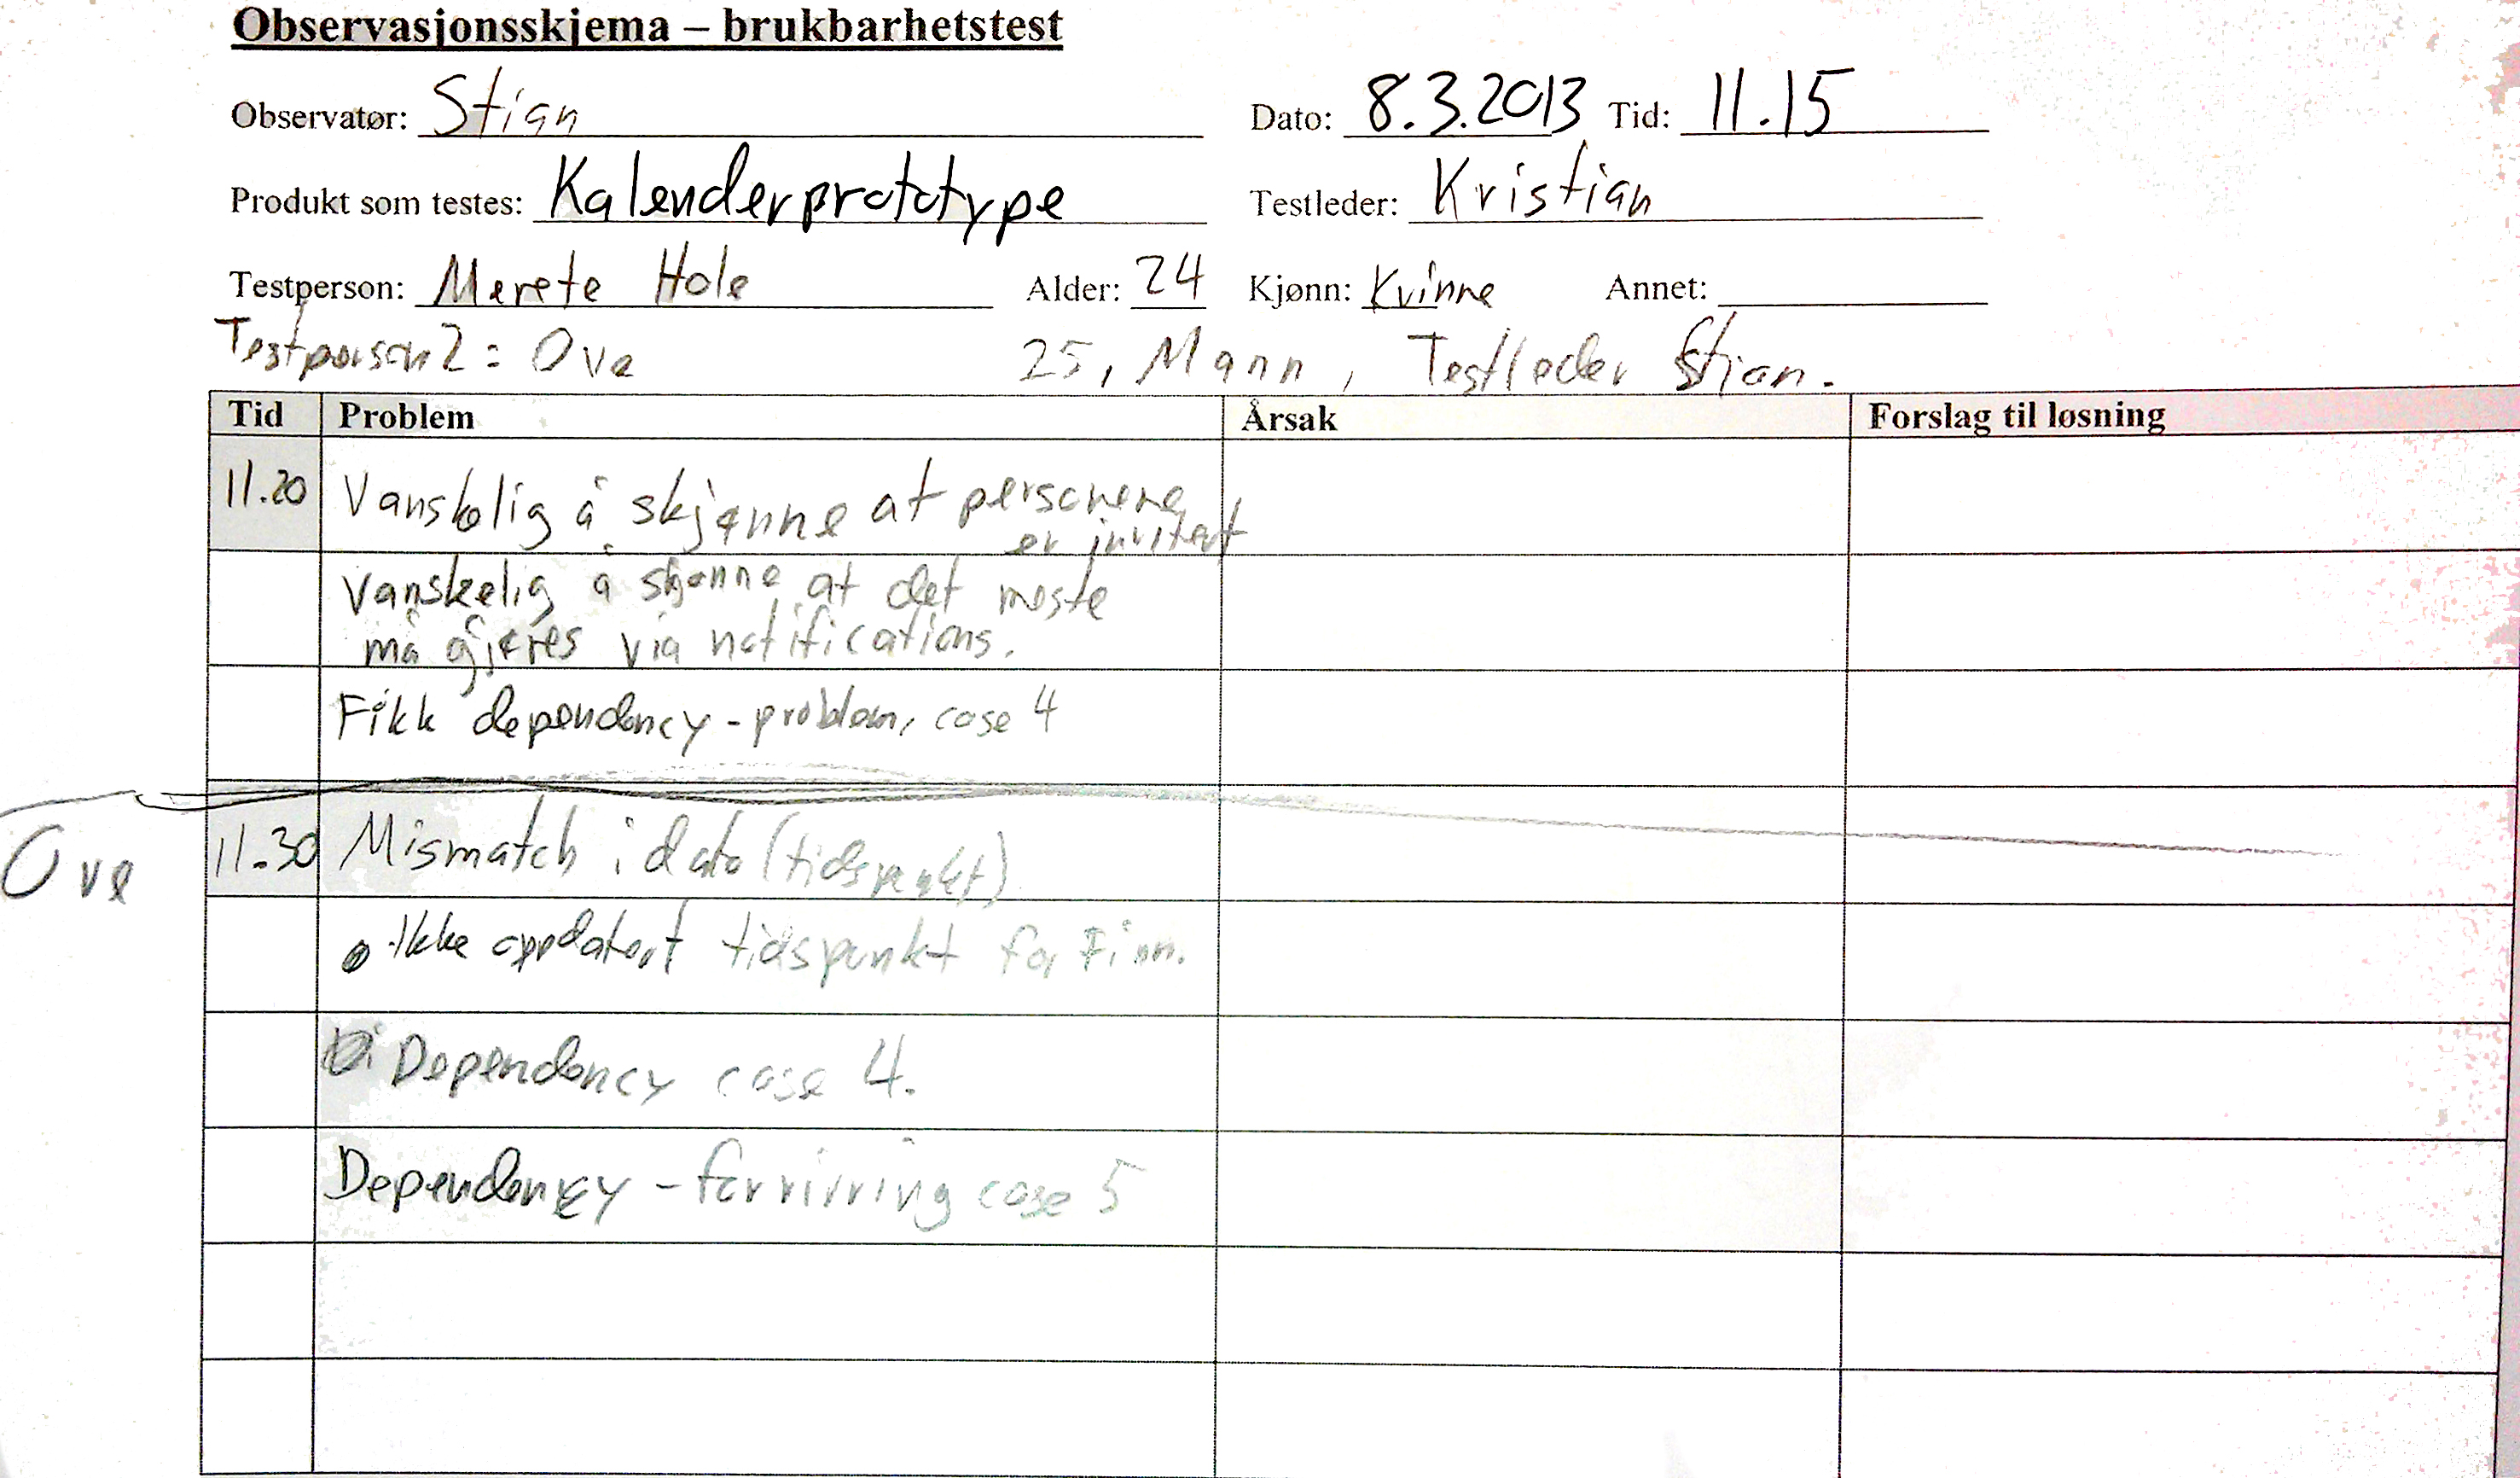 Observasjonsskjema – brukbarhetstest
Observatør: Stian Dato: 8.3.2013 Tid: 11.15
Produkt som testes: Kalenderprototype Testleder: Kristian
Testperson: Merete Hole Alder: 24 Kjønn: Kvinne Annet:
Testperson 2: Ove 25, Mann, Testleder Stian.
Tid Problem Årsak Forslag til løsning
11.20 Vanskelig å skjønne at personene
er invitert
Vanskelig å skjønne at det meste
må gjøres via notifications.
Fikk dependency-problem, case 4
Ove 11.30 Mismatch i dato (tidspunkt)
Ikke oppdatert tidspunkt for Finn.
Dependency case 4.
Dependency - forvirring case 5